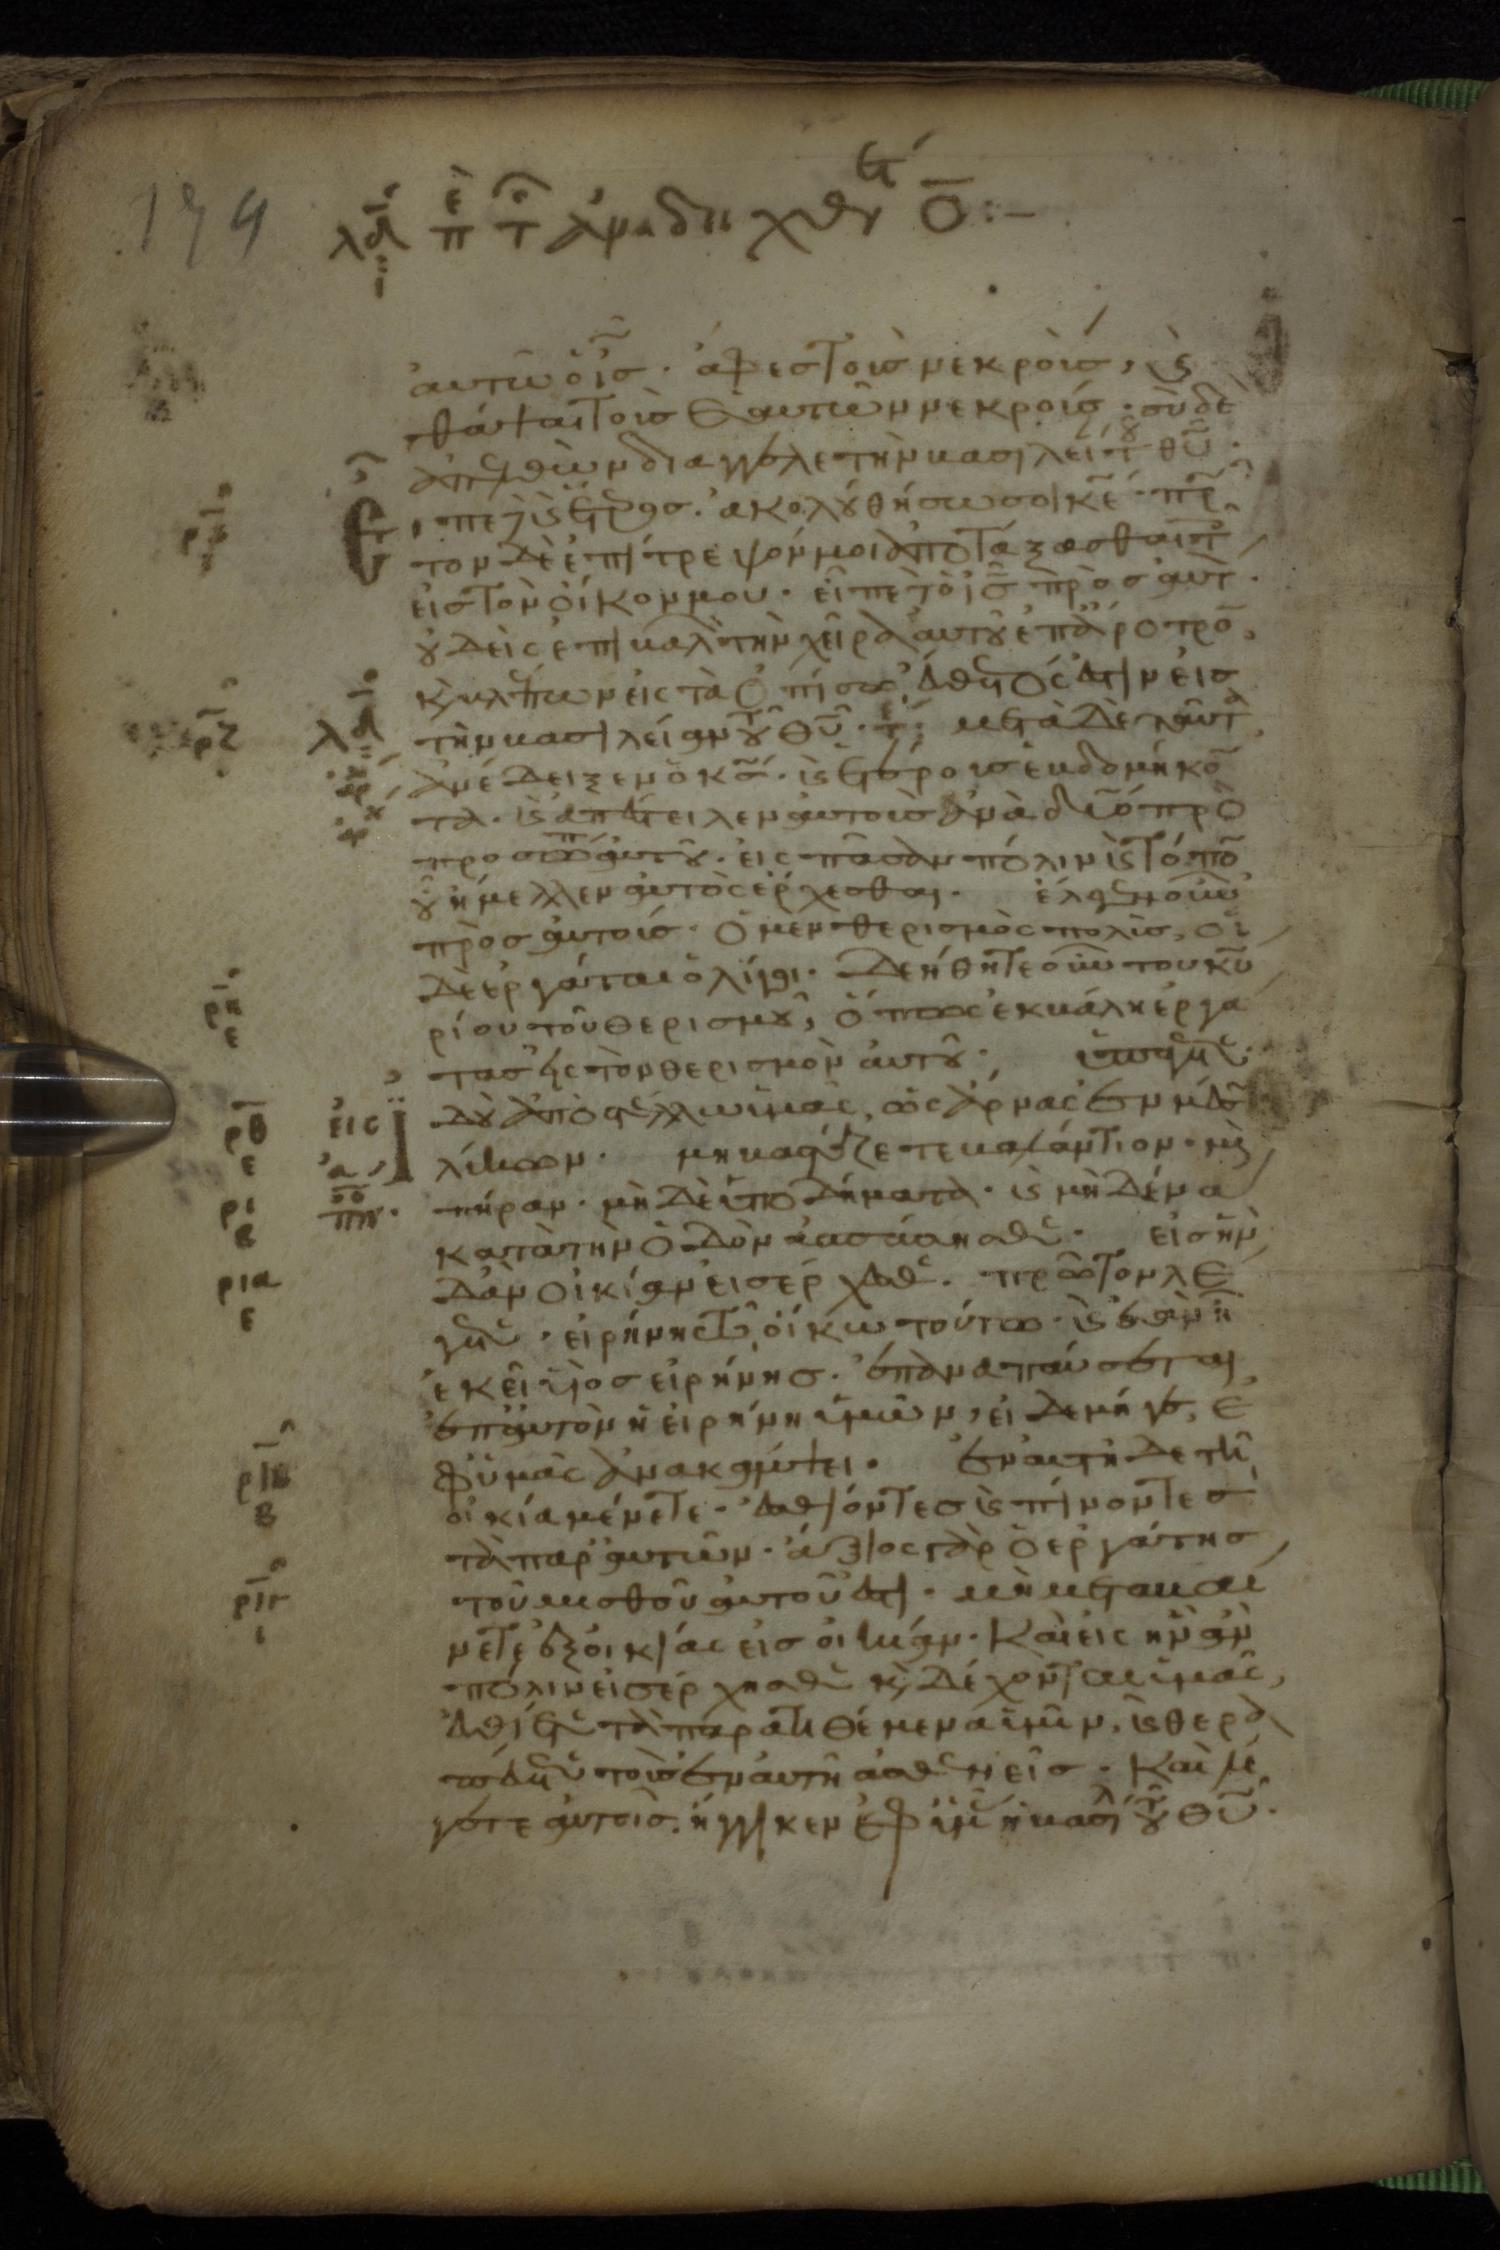 179
λδ π τ ἀναδειχθεντ ο̅ :–
ἀυτῶ ὁ ι̅σ̅. ἄφες τοὺς νεκροὺς, κ̀
θάψαι τοὺς ἑαυτῶν νεκρούς. σὺ δὲ
ἀπελθὼν διάγγελε τὴν βασιλεί τοῦ θ̅υ̅.
Εἶπε δὲ κ̀ ἕτερος. ἀκολουθήσω σοι κ̅ε̅. πρῶ
τον δὲ ἐπίτρεψόν μοι ἀποτάξασθαι τοῖ
εἰς τὸν οἶκον μου. εἶπε δὲ ὁ ι̅σ̅ πρὸς αὐτ.
οὐδεὶς ἐπιβαλὼ τὴν χεῖρα αὐτοῦ ἐπ ἄροτρο,
κ̀ βλέπων εἰς τὰ ὀπίσω, ἔυθετός ἐστιν εἰς
τὴν βασιλείαν τοῦ θ̅υ̅. τε: μετὰ δὲ ταῦτα
ἀνέδειξεν ὁ κ̅σ̅. κ̀ ἑτέρους ἑβδομήκο
τα. κ̀ ἀπέστειλεν αὐτοὺς ἀνὰ δύο πρὸ
προσώπου αὐτοῦ. εἰς πᾶσαν πόλιν κ̀ τόπο
οὗ ἤμελλεν αὐτὸς ἔρχεσθαι. ἔλεγεν οὖν
πρὸς αὐτούς. ὁ μὲν θερισμὸς πολὺς, οἱ
δὲ ἐργάται ὀλίγοι. δεήθητε οὖν του κυ
ρίου τοῦ θερισμοῦ, ὅπως ἐκβάλη ἐργά
τας εἰς τὸν θερισμὸν αὐτοῦ. ὑπάγετε.
ἰδοὺ ἀποστέλλω ὑμᾶς, ὡς ἄρνας ἐν μέσω
λύκων. μὴ βαστάζετε βαλάντιον. μὴ
πήραν. μὴ δὲ ὑποδήματα. κ̀ μὴ δένα
κατὰ τὴν ὁδὸν ἀσπάσησθε. εἰς ἣν
δἂν οἰκίαν εἰσέρχεσθε. πρῶτον λέ
γετε. εἰρήνη τῶ οἴκω τούτω. κ̀ ἐὰν ἦ
ἐκεῖ υἱὸς εἰρήνης. ἐπαναπαύσεται
ἐπ αὐτὸν ἡ εἰρήνη ὑμῶν, εἰ δεμήγε, ἐ
φ ὑμᾶς ἀνακάμψει. ἐν αυτῆ δὲ τῆ
οἰκία μένετε. ἐσθίοντες κ̀ πίνοντες
τὰ παρ αὐτῶν. ἄξιος γὰρ ὁ ἐργάτης
τοῦ μισθοῦ αὐτοῦ ἐστι. μὴ μεταβαί
νετε ἐξ οἰκίας εἰς οἰκίαν. Καὶ εἰς ἣν ἂν
πόλιν εἰσέρχησθε κ̀ δέχονται ὑμᾶς,
ἐσθίετε τὰ παρατιθέμενα ὑμῖν, κ̀ θερα
πέυετε τοὺς ἐν αυτῆ ἀσθενεῖς. Καὶ λέ
γετε αὐτοῖς. ἤγγικεν ἐφ ὑμᾶς ἡ βασιλ τοῦ θ̅υ̅.
ρς
ρζ
λδ
ρη
ε
ρθ
ε
ρι
β
ρια
ε
ριβ
β
ριγ
ι